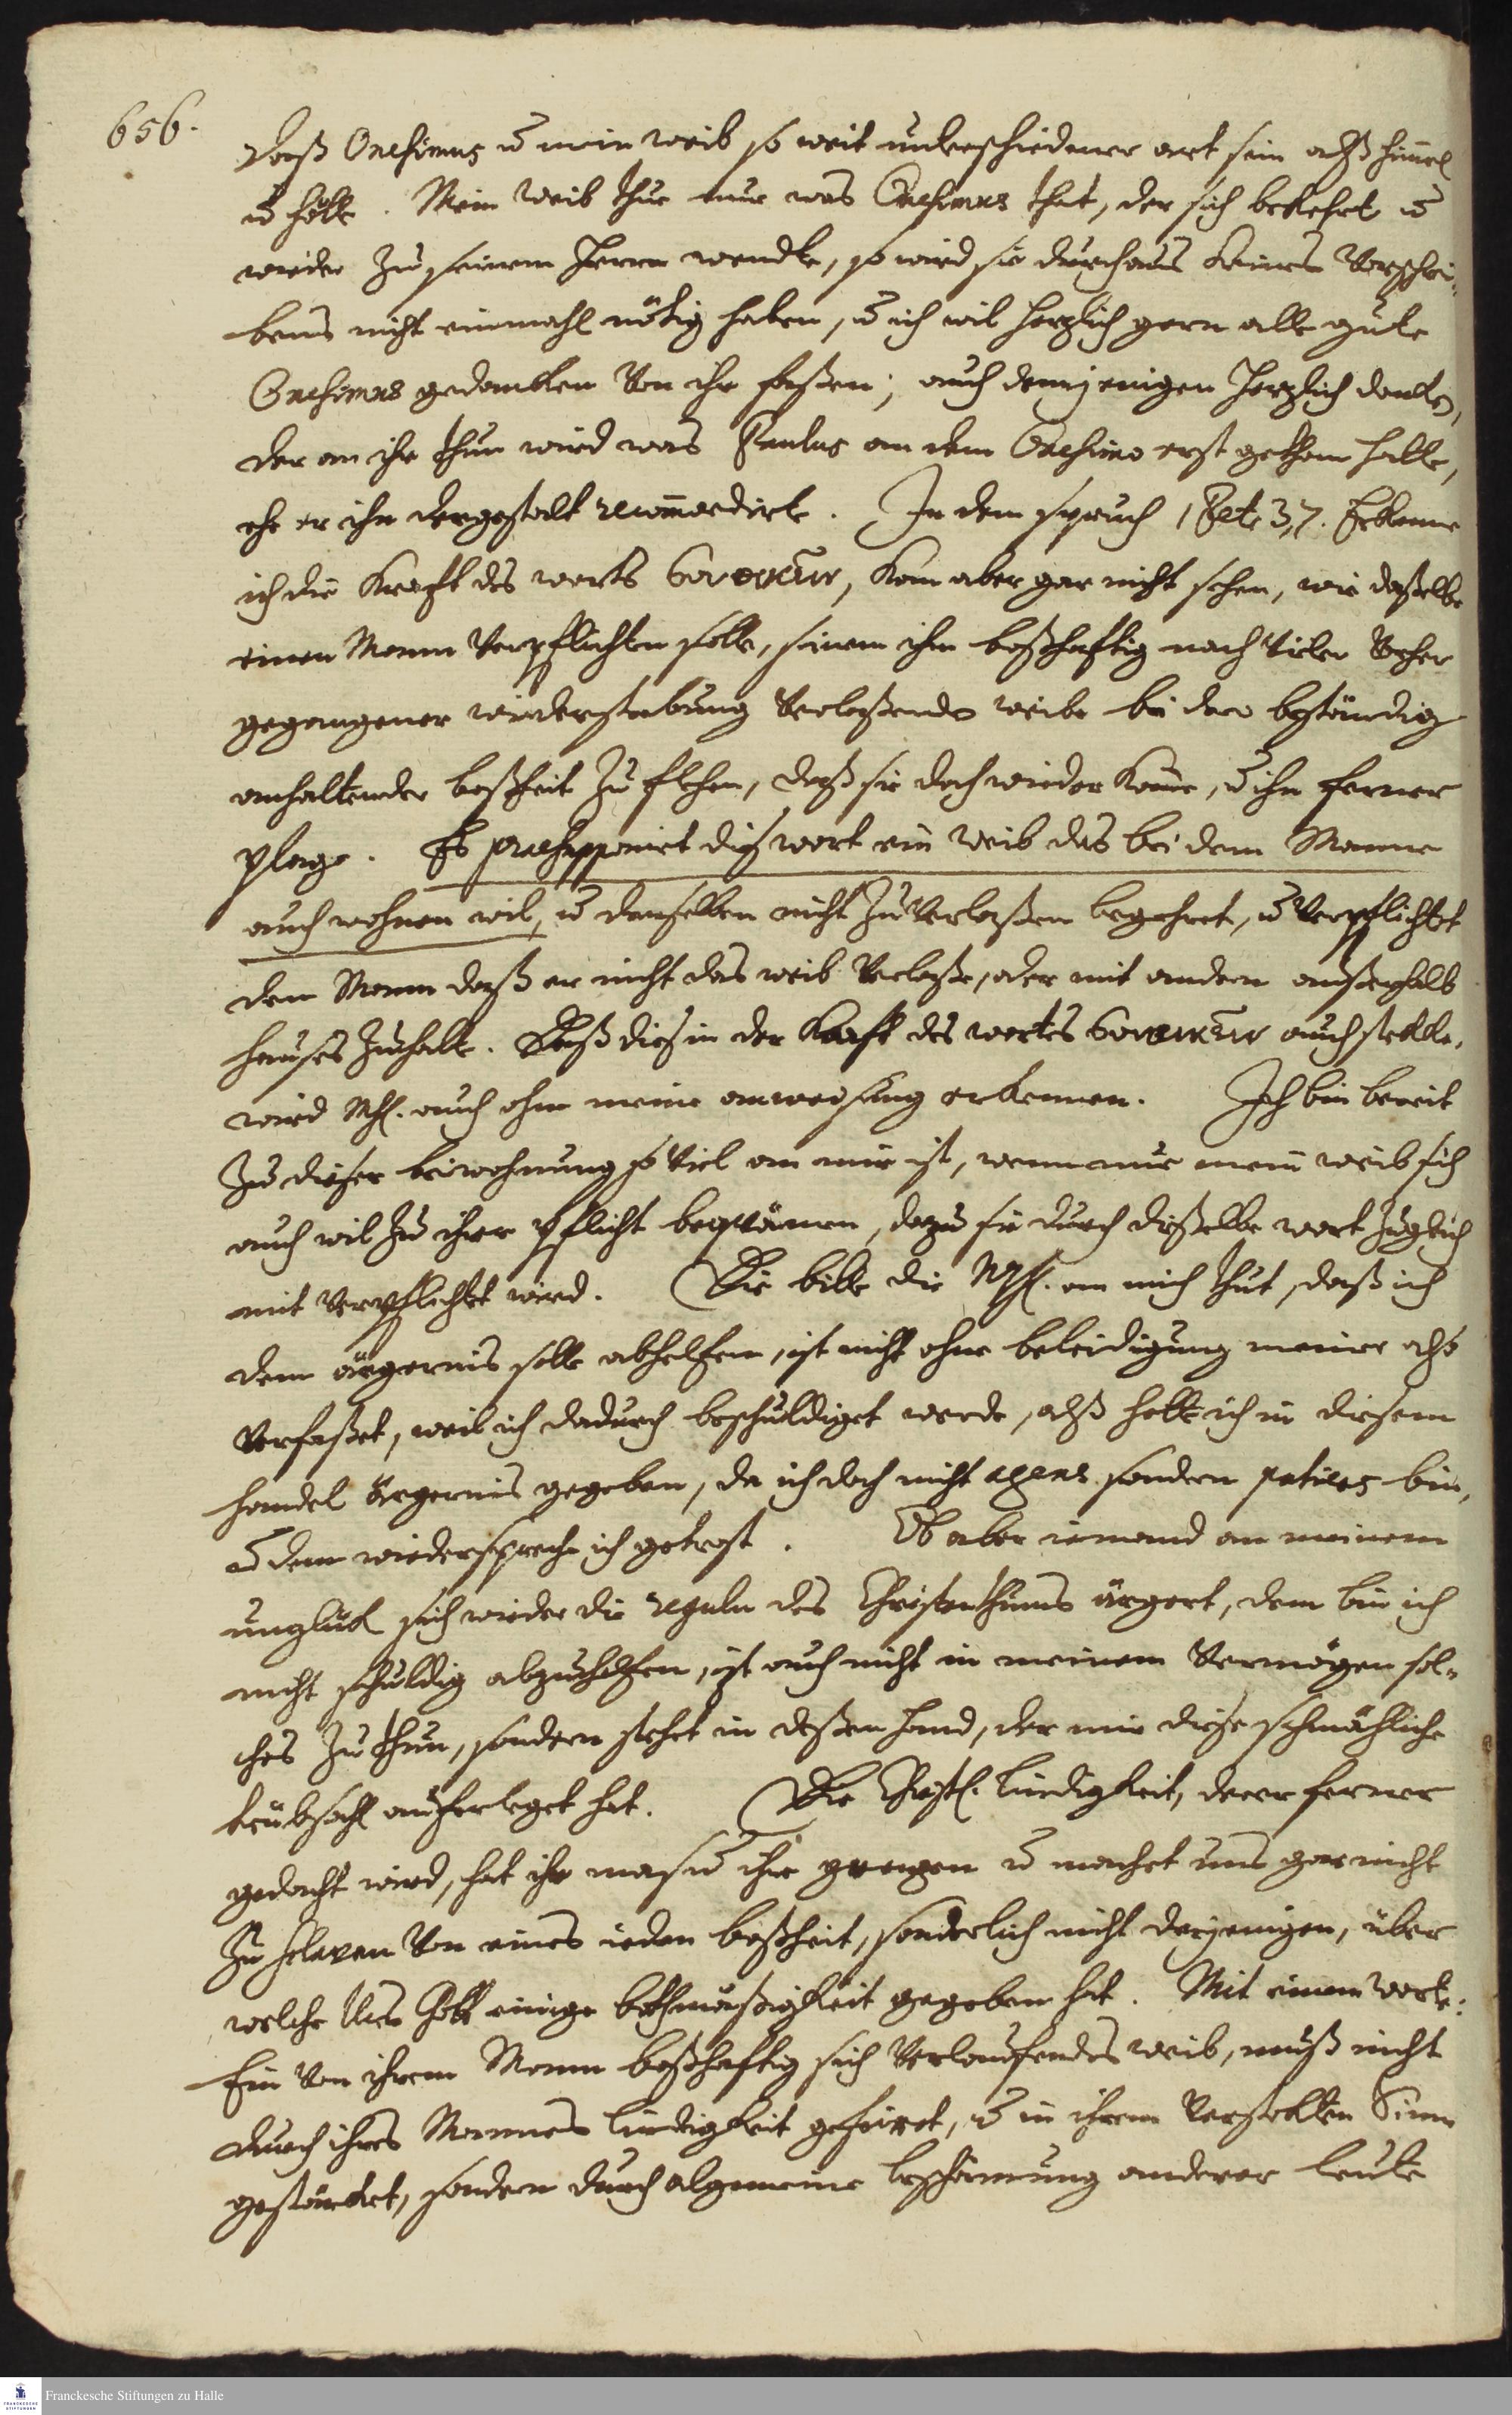 656.
daß Onesimus u mein weib so weit underschiedener art sein alß himel
u hölle. Mein weib thue nur was Onesimus that, der sich bekehrt u
wieder zu seinem Herrn wendte, so wird sie durchaus keines Vorschrei-
bens nicht einmahl nötig haben, u ich wil herzlich gern alle gute
Onesimus gedancken von ihr faßen; auch demjenigen herzlich dancken,
der an ihr thun wird was Paulus an dem Onesimo erst gethan hatte,
ehe er ihn dergestalt recommendirte. In dem spruch 1 Petr 3,7. Erkenne
ich die Krafft des worts συνοικεῖν, kan aber gar nicht sehen, wie daßelbe
einen Mann verpflichten solle, seinem ihn boßhafftig nach vieler vorher
gegangener wiederstrebung verlaßenden weibe bei dero beständig
anhaltender boßheit zu flehen, daß sie doch wieder komme, u ihn ferner
plage. Es praesupponirt diß wort ein weib das bei dem Manne
auch wohnen wil, u denselben nicht zu verlaßen begehret, u verpflichtet
den Mann daß er nicht das weib verlaße, oder mit andern außerhalb
hauses zuhalte. Daß dieß in der Krafft des wortes συνοικεῖν auch stecke,
wird MH. auch ohn meine anweisung erkennen. Ich bin bereit
zu dieser beiwohnung so viel an mir ist, wenn nur mein weib sich
auch wil zu ihrer pflicht beqvämen, dazu sie durch dißelbe wort zugleich
mit verpflichtet wird. Die bitte die MH. an mich thut, daß ich
dem ärgernis solle abhelfen, ist nicht ohne beleidigung meiner also
verfaßet, weil ich dadurch beschuldiget werde, alß hette ich in diesem
handel ärgernis gegeben, da ich doch nicht agens sondern patiens bin,
u dem wiederspreche ich getrost. Ob aber iemand an meinem
unglück sich wieder die reguln des Christenthums ärgert, dem bin ich
nicht schuldig abzuhelfen, ist auch nicht in meinem vermögen sol-
ches zu thun, sondern stehet in deßen hand, der mir diese schmähliche
trübsahl auferleget hat. Die Christl. lindigkeit, derer ferner
gedacht wird, hat ihr maß u ihre grenzen u machet uns gar nicht
zu sclaven von eines ieden boßheit, sonderlich nicht derjenigen, über
welche Uns Gott einige bothmäßigkeit gegeben hat. Mit einem worte:
Ein von ihrem Mann boßhafftig sich verlauffendes weib, muß nicht
durch ihres Mannes lindigkeit gesteifet, u in ihrem verstockten Sinn
gestärcket, sondern durch algemeine beschämung anderer leute
Franckesche Stiftungen zu Halle